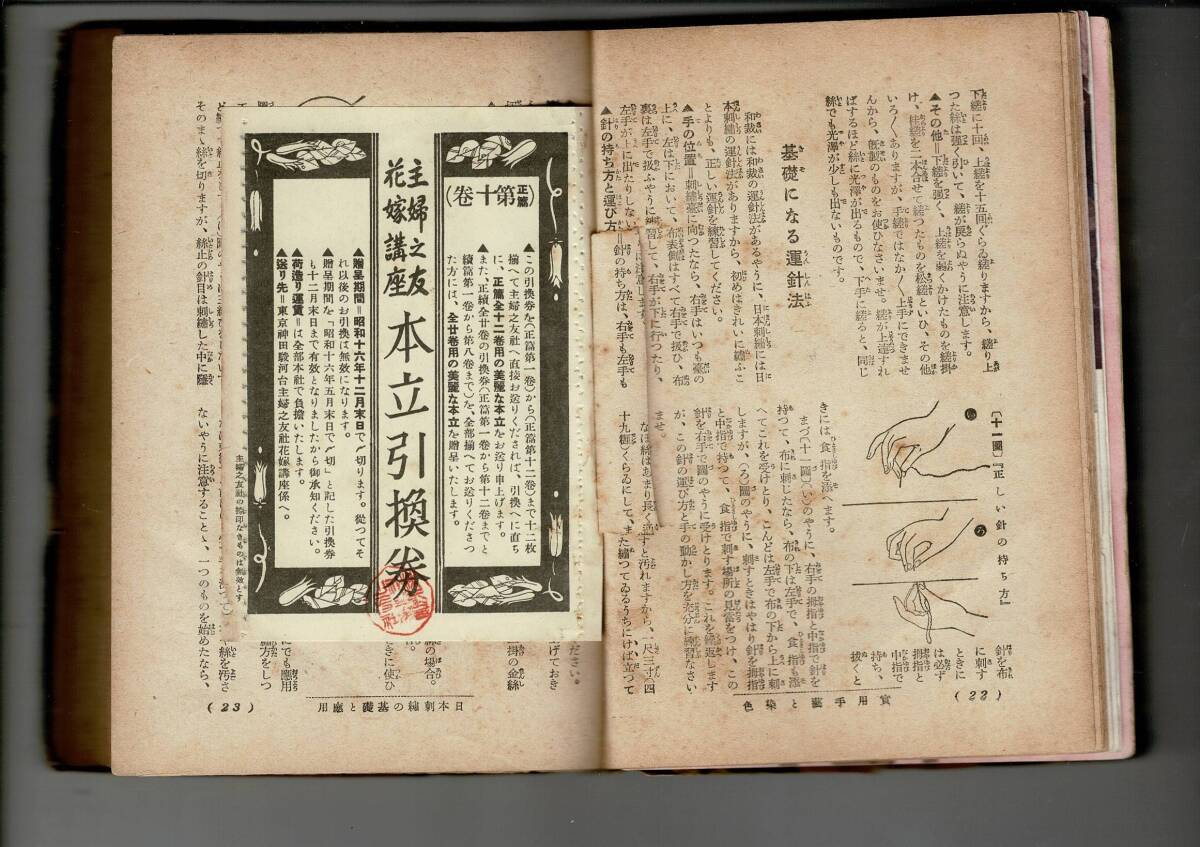 下縒に十回、上縒を十五回ぐらゐ縒りますから、縒り上
つた絲は强く引いて、縒が戾らぬやうに注意します。
▲その他＝下縒を强く、上縒を弱くかけたものを縒掛
け、縒を二本合せて縒つたものを松縒といひ、その他
いろ〱ありますが、手縒ではなか〱上手にできませ
んから、旣製のものをお使ひなさいませ。縒が上達すれ
ばするほど絲に光澤が出るもので、下手に縒ると、同じ
絲でも光澤が少しも出ないものです。
基礎になる運針法
うんしんはふ
和裁には和裁の運針法があるやうに、日本刺繡には日
本刺繡の運針法がありますから、初めはきれいに繡ふこ
とよりも、正しい運針を練習してください。
▲手の位置＝刺繡臺に向つたなら、右手はいつも臺の
上に、左は下において、布表側はすべて右手で扱ひ、布
裏は左手で扱ふやうに練習して、右手が下に行つたり、
左手が上に出たりしない
に注意します。
▲針の持ち方と運び方
＝針の持ち方は、右手も左手も
〔十一圖〕『正しい針の持ち方』
い
ろ
針を布
に刺す
ときに
は必ず
拇指と
中指で
持ち、
拔くと
きには食指を添へます。
まづ〔十一圖〕(い)のやうに、右手の拇指と中指で針を
持つて、布に刺したなら、布の下は左手で、食指も添
へてこれを受けとり、こんどは左手で布の下から上に刺
しますが、(ろ)圖のやうに、刺すときはやはり拇指
と中指で持つて、食指で刺す場所の見當をつけ、この
針を右手で圖のやうに受けとります。これを繰返します
が、この針の運び方と手の動かし方を充分に練習なさい
ませ。
なほ絲はあまり長く通すと汚れますから、一尺三寸(四
十九糎)くらゐにして、また繡つてゐるうちにけば立つて
實用手藝と染色
(22)
(正篇第十卷)
主婦之友
花嫁講座
本立引換券
▲この引換券を(正篇第一卷)から(正篇第十二卷)まで十二枚
揃へて主婦之友社へ直接お送りくだされば、引換へに直ち
に、正篇全十二卷用の美麗な本立をお送り申上げます。
▲また、正續全廿卷の引換券(正篇第一卷から第十二卷までと
續篇第一卷から第八卷まで)を、全部揃へてお送りくださつ
た方には、全廿卷用の美麗な本立を贈呈いたします。
▲贈呈期間＝昭和十六年十二月末日で〆切ります。從つてそ
れ以後のお引換は無效になります。
▲贈呈期間を「昭和十六年五月末日で〆切」と記した引換券
も十二月末日まで有效となりましたから御承知ください。
▲荷造り運賃＝は全部本社で負擔いたします。
▲送り先＝東京神田駿河台主婦之友社花嫁講座係へ。
主婦之友社の捺印なきものは無效とす
そのまゝ絲を切りますが、絲止の針目は刺繡した中に隱
ださい。
げておき
掛の金絲
絲の場合。
ときに使ひ
にでも應用
繡方をしつ
や絲を汚さ
ないやうに注意すること、一つのものを始めたなら、
日本刺繡の基礎と應用
(23)